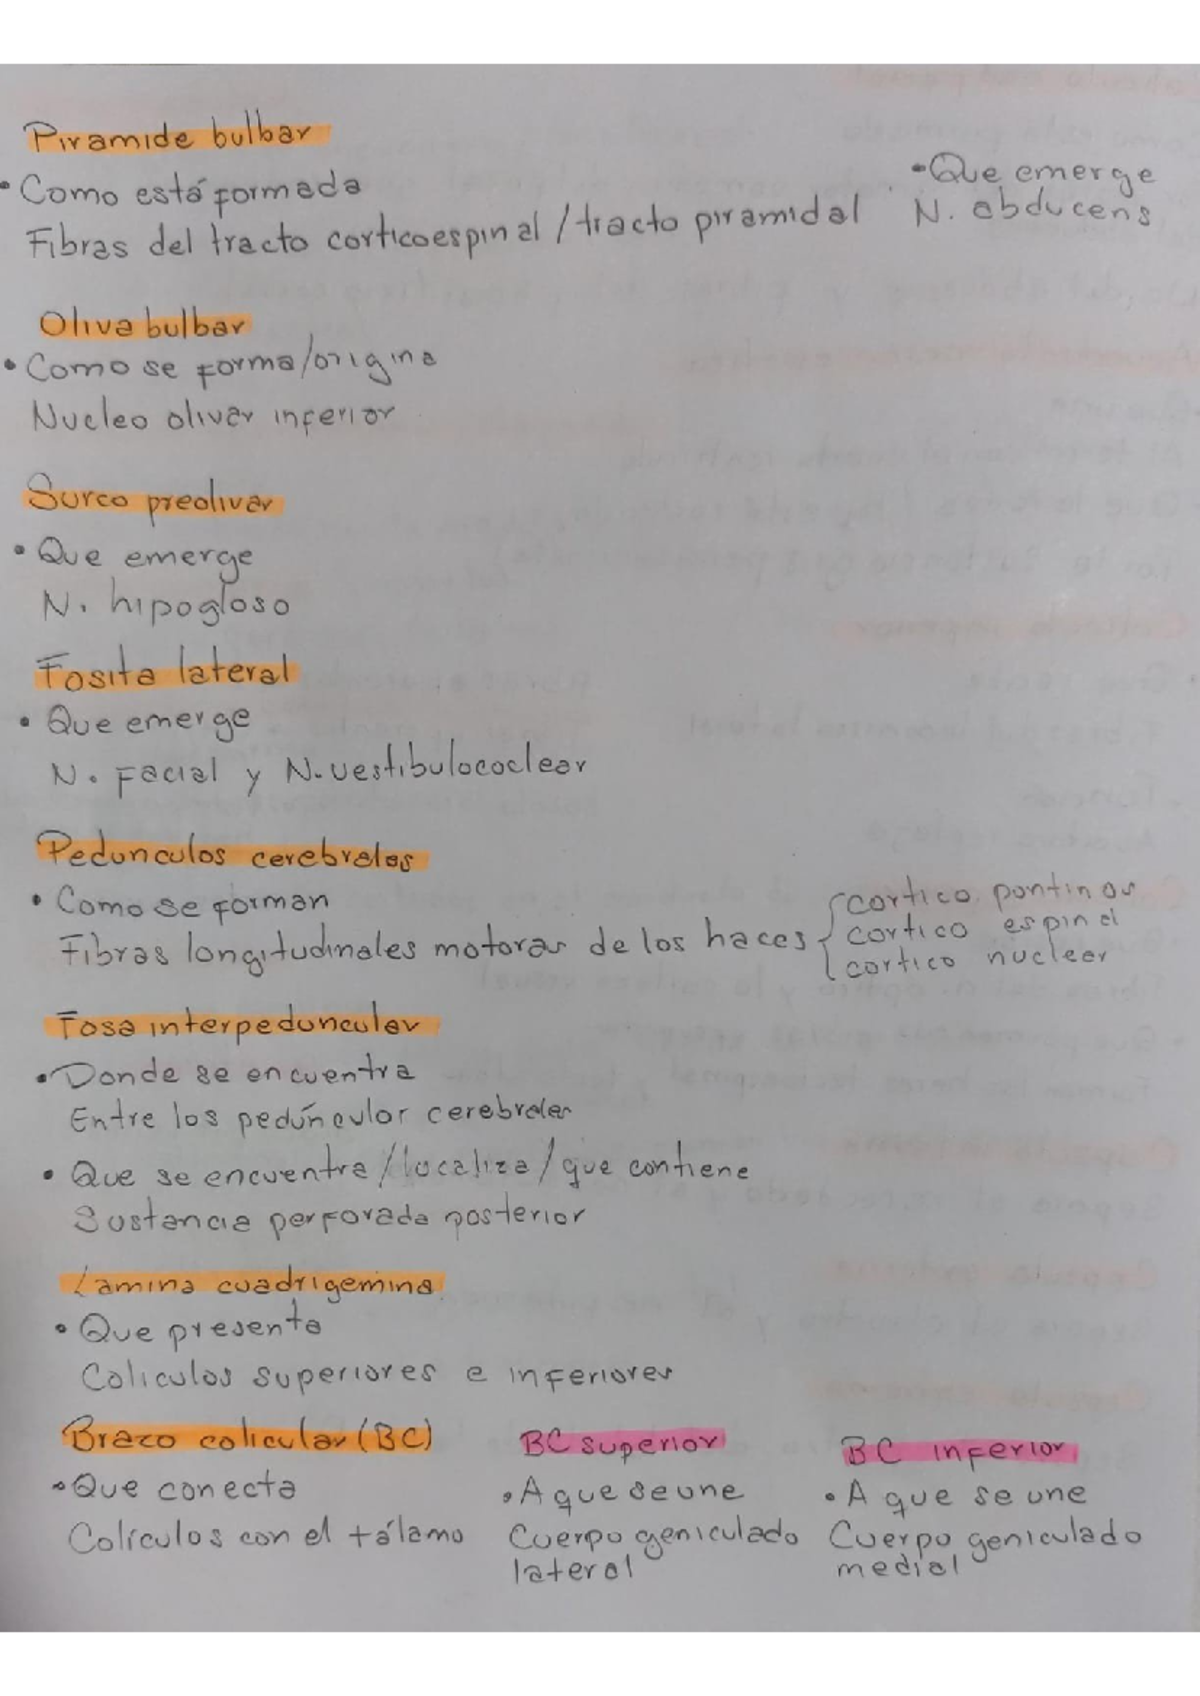 Piramide bulbar
• Como está formada
Fibras del tracto corticoespinal / tracto piramidal
• Que emerge
N. abducens
Oliva bulbar
• Como se forma/origina
Nucleo olivar inferior
Surco preolivar
• Que emerge
N. hipogloso
Fosita lateral
• Que emerge
N. Facial y N. vestibulococlear
Pedunculos cerebrales
• Como se forman
Fibras longitudinales motoras de los haces
cortico pontinos
cortico espinal
cortico nuclear
Fosa interpeduncular
• Donde se encuentra
Entre los pedúnculos cerebrales
• Que se encuentra/localiza/que contiene
Sustancia perforada posterior
Lamina cuadrigemina
• Que presenta
Coliculos superiores e inferiores
Brazo colicular (BC)
• Que conecta
Colículos con el tálamo
BC superior
• A que se une
Cuerpo geniculado
lateral
BC inferior
• A que se une
Cuerpo geniculado
medial